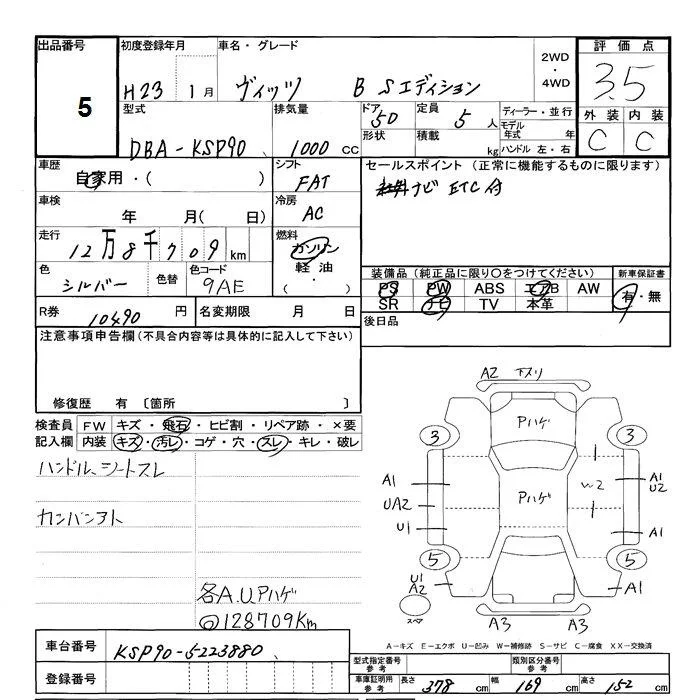 出品番号
5
初度登録年月
H23 1月
車名・グレード
ヴィッツ B Sエディション
2WD
・
4WD
評価点
3.5
外装 内装
C C
型式
DBA-KSP90
排気量
1000 cc
ドア
5D
形状
定員
5 人
積載
kg
ディーラー・並行
モデル
年式 年
ハンドル 左・右
車歴
自家用・( )
シフト
FAT
車検
年 月( 日)
冷房
AC
走行
12万8千709 km
燃料
ガソリン
軽油
( ・ )
色
シルバー
色替
色コード
9AE
R券
10490 円
名変期限 月 日
セールスポイント(正常に機能するものに限ります)
ナビ ETC付
装備品(純正品に限り〇をつけてください)
新車保証書
PS PW ABS エアB AW
SR ナビ TV 本革
有・無
後日品
注意事項申告欄(不具合内容等は具体的に記入して下さい)
修復歴 有 〔箇所 〕
検査員
記入欄
FW キズ・飛石・ヒビ割・リペア跡・×要
内装 キズ・汚レ・コゲ・穴・スレ・キレ・破レ
ハンドル、シートスレ
カンバンアト
各A.U.Pハゲ
◎128709Km
A2 下スリ
Pハゲ
3 3
A1
UA2
U1
Pハゲ
W2
A1
U2
A1
5 5
U1
A2
A1
スペア
A3 A3
A-キズ E-エクボ U-凹み W-補修跡 S-サビ C-腐食 XX-交換済
車台番号
KSP90-5223880
登録番号
型式指定番号
参考
類別区分番号
参考
車庫証明用
参考
長さ 378 cm 幅 169 cm 高さ 152 cm